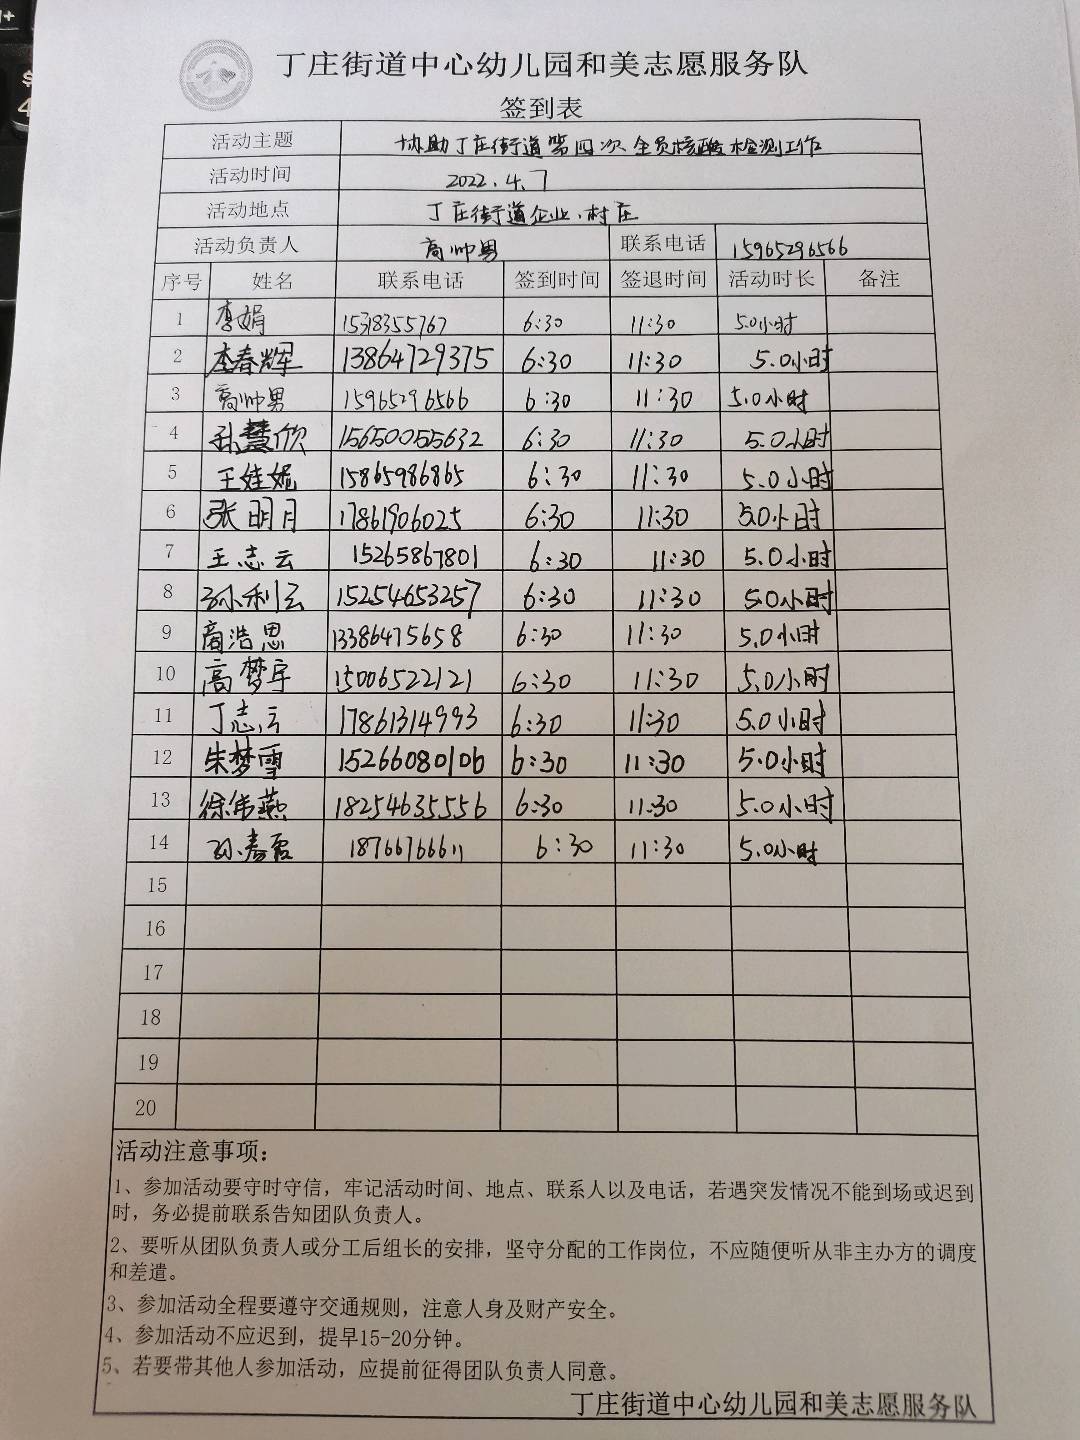 丁庄街道中心幼儿园和美志愿服务队
签到表
活动主题 协助丁庄街道第四次全员核酸检测工作
活动时间 2022.4.7
活动地点 丁庄街道企业、村庄
活动负责人 高帅男 联系电话 15965296566
序号 姓名 联系电话 签到时间 签退时间 活动时长 备注
1 李娟 15318355767 6:30 11:30 5.0小时
2 李春辉 13864729375 6:30 11:30 5.0小时
3 高帅男 15965296566 6:30 11:30 5.0小时
4 孙慧欣 15650055632 6:30 11:30 5.0小时
5 王娃妮 15865986865 6:30 11:30 5.0小时
6 张明月 17861906025 6:30 11:30 5.0小时
7 王志云 15265867801 6:30 11:30 5.0小时
8 孙利云 15254653257 6:30 11:30 5.0小时
9 商浩思 13386475658 6:30 11:30 5.0小时
10 高梦宇 15006522121 6:30 11:30 5.0小时
11 丁志云 17861314993 6:30 11:30 5.0小时
12 朱梦雪 15266080106 6:30 11:30 5.0小时
13 徐伟燕 18254635556 6:30 11:30 5.0小时
14 孙春霞 18766766611 6:30 11:30 5.0小时
15
16
17
18
19
20
活动注意事项：
1、参加活动要守时守信，牢记活动时间、地点、联系人以及电话，若遇突发情况不能到场或迟到
时，务必提前联系告知团队负责人。
2、要听从团队负责人或分工后组长的安排，坚守分配的工作岗位，不应随便听从非主办方的调度
和差遣。
3、参加活动全程要遵守交通规则，注意人身及财产安全。
4、参加活动不应迟到，提早15-20分钟。
5、若要带其他人参加活动，应提前征得团队负责人同意。
丁庄街道中心幼儿园和美志愿服务队